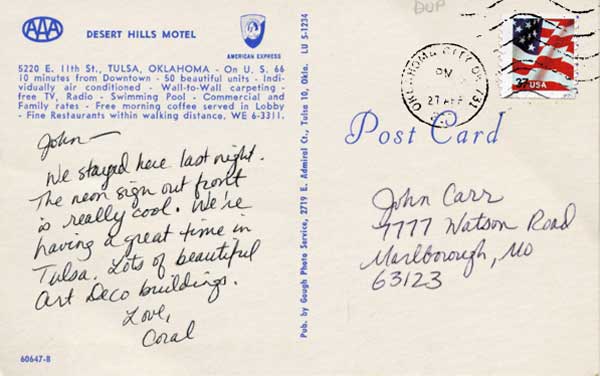 AAA
DESERT HILLS MOTEL
AMERICAN EXPRESS
5220 E. 11th St., TULSA, OKLAHOMA - On U. S. 66
10 minutes from Downtown - 50 beautiful units - Indi-
vidually air conditioned - Wall-to-Wall carpeting -
free TV, Radio - Swimming Pool - Commercial and
Family rates - Free morning coffee served in Lobby
- Fine Restaurants within walking distance. WE 6-3311.
John—
We stayed here last night.
The neon sign out front
is really cool. We're
having a great time in
Tulsa. Lots of beautiful
Art Deco buildings.
Love,
Coral
60647-B
Pub. by Gough Photo Service, 2719 E. Admiral Ct., Tulsa 10, Okla. LU 5-1234
DUP
OKLAHOMA CITY OK 731
PM
27 APR
37 USA
Post Card
John Carr
7777 Watson Road
Marlborough, MO
63123